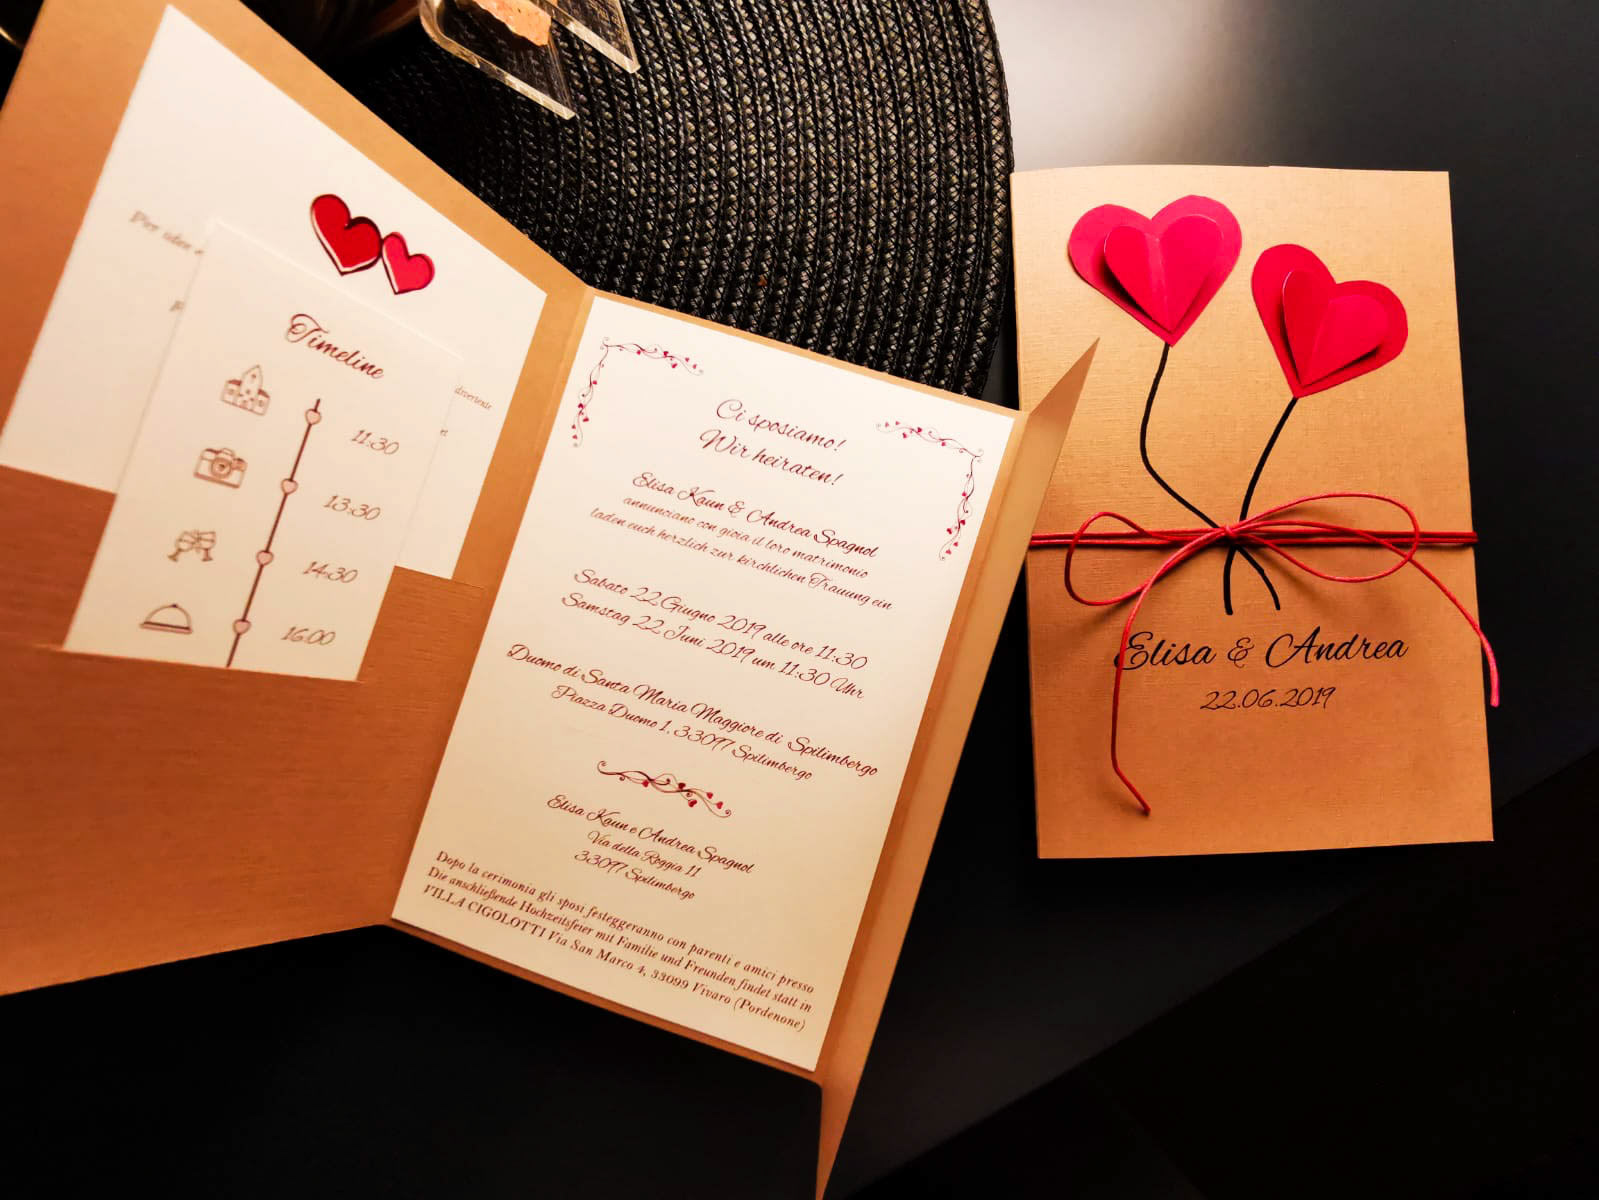 Per
Timeline
11:30
13:30
14:30
16.00
divertente
Ci sposiamo!
Wir heiraten!
Elisa Kaun & Andrea Spagnol
annunciano con gioia il loro matrimonio
laden euch herzlich zur kirchlichen Trauung ein
Sabato 22 Giugno 2019 alle ore 11:30
Samstag 22 Juni 2019 um 11:30 Uhr
Duomo di Santa Maria Maggiore di Spilimbergo
Piazza Duomo 1, 33097 Spilimbergo
Elisa Kaun e Andrea Spagnol
Via della Roggia 11
33097 Spilimbergo
Dopo la cerimonia gli sposi festeggeranno con parenti e amici presso
Die anschließende Hochzeitsfeier mit Familie und Freunden findet statt in
VILLA CIGOLOTTI Via San Marco 4, 33099 Vivaro (Pordenone)
Elisa & Andrea
22.06.2019